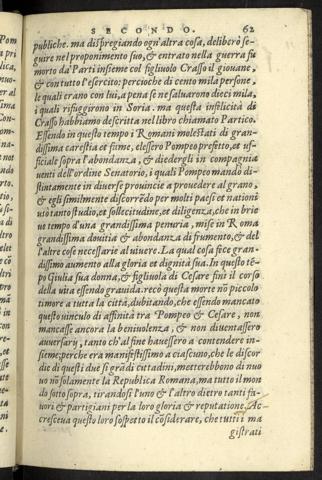 SECONDO. 62
publiche. ma dispregiando ogn'altra cosa, deliberò se-
guire nel proponimento suo, & entrato nella guerra fu
morto da' Parti insieme col figliuolo Crasso il giouane,
& con tutto l'esercito: percioche di cento mila persone,
le quali erano con lui, a pena se ne saluarono dieci mila,
i quali rifuggirono in Soria. ma questa infelicità di
Crasso habbiamo descritta nel libro chiamato Partico.
Essendo in questo tempo i Romani molestati di gran-
dissima carestia et fame, elessero Pompeo prefetto, et uf-
ficiale sopra l'abondanza, & diedergli in compagnia
uenti dell'ordine Senatorio, i quali Pompeo mandò di-
stintamente in diuerse prouincie a prouedere al grano,
& egli similmente discorrēdo per molti paesi et nationi
usò tanto studio, et sollecitudine, et diligenza, che in brie
ue tempo d'una grandissima penuria, mise in Roma
grandissima douitia & abondanza di frumento, & del
l'altre cose necessarie al uiuere. La qual cosa fece gran-
dissimo aumento alla gloria et dignità sua. In questo tē-
po Giulia sua donna, & figliuola di Cesare finì il corso
della uita essendo grauida. recò questa morte nō piccolo
timore a tutta la città, dubitando, che essendo mancato
questo uinculo di affinità tra Pompeo & Cesare, non
mancasse ancora la beniuolenza, & non diuentassero
auuersarij, tanto ch'al fine hauessero a contendere in-
sieme; perche era manifestissimo a ciascuno, che le discor
die di questi due sì grādi cittadini, metterebbono di nuo
uo nō solamente la Republica Romana, ma tutto il mon
do sotto sopra, tirandosi l'uno & l'altro dietro tanti fa-
uori & partigiani per la loro gloria & reputatione. Ac-
cresceua questo loro sospetto il cōsiderare, che tutti i ma
gistrati